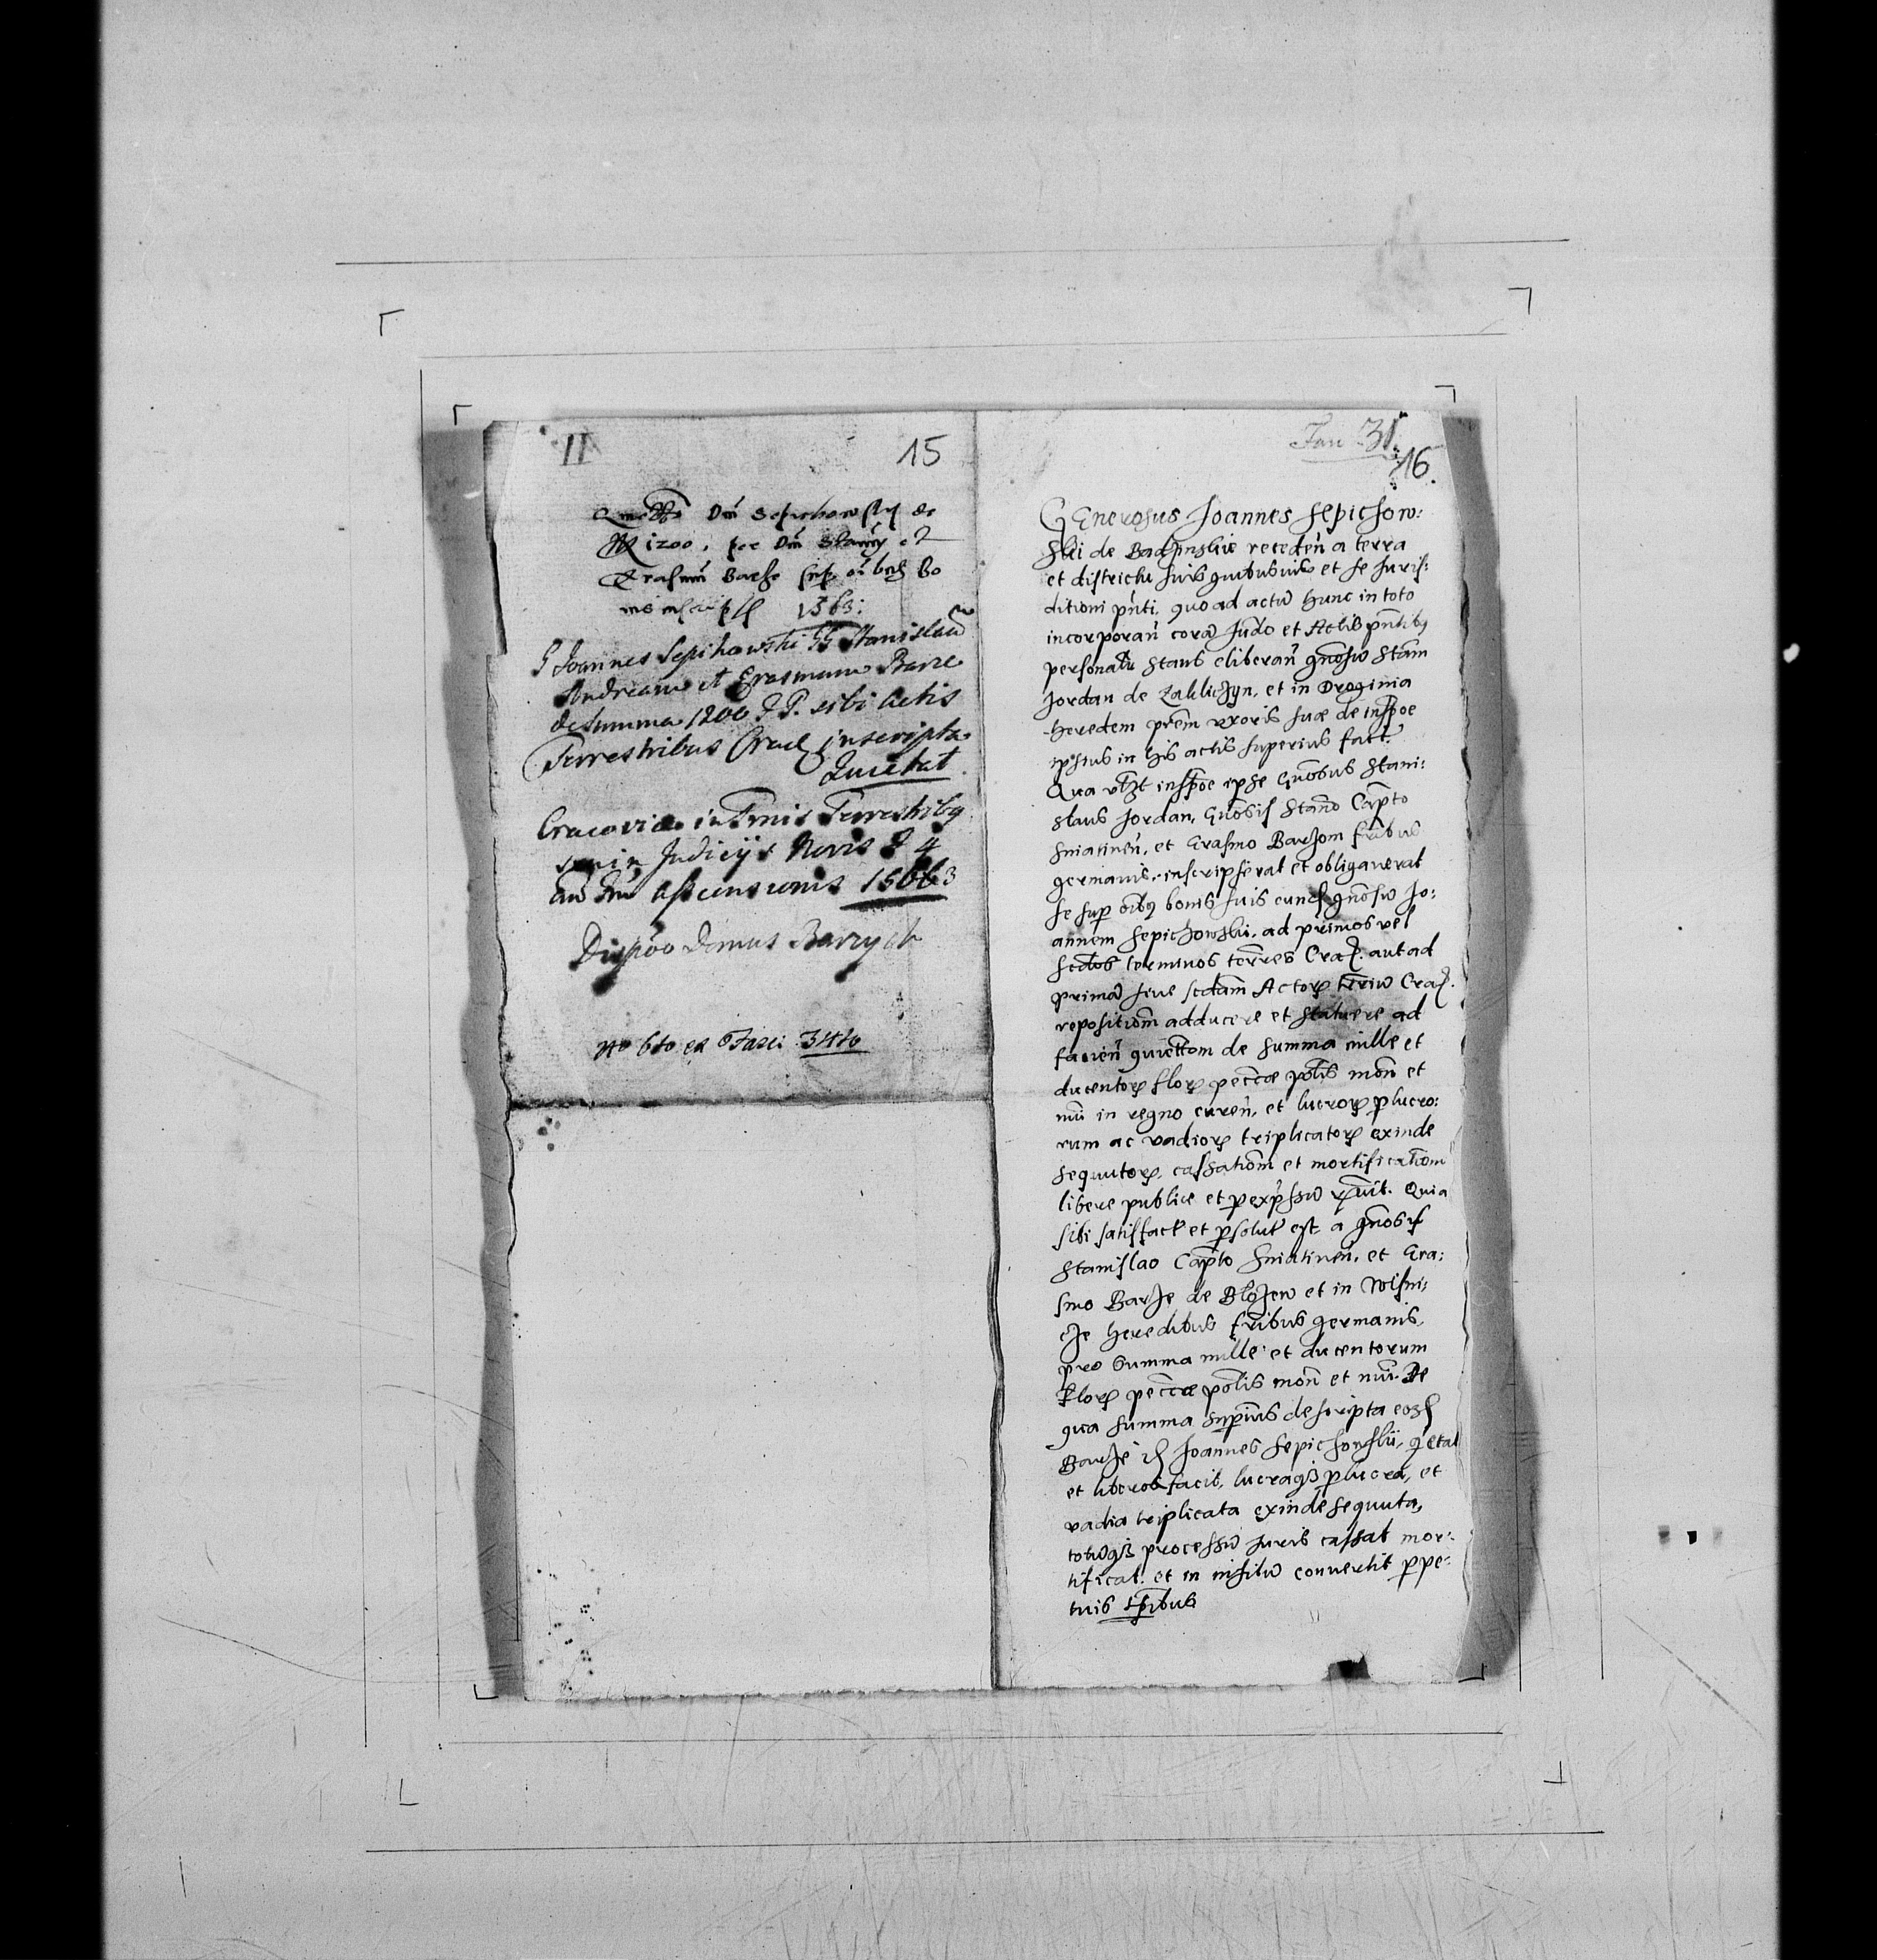 II
15
Dnī Sepichowskÿ de
1200. per Dnm̄ Stanny et
Erasmū Barze
1563:
G Joannes Sepihowski GG Stanislaū
Andream et Erasmum Barze
de summa 1200 F P. sibi Actis
Terrestribus Crac inscripta
Quietat
Cracoviæ in Tmis Terrestribq
Judicijs Novis F 4
an̄ Fm̄ Ascensionis 15663
Dispõo Domus Barzych
No 6to ex Fasci 34to
Jan 31.
16.
GEnerosus Joannes Sepichow:
ski de receden̄ a terra
et districtu suis quibusuis et se Juris:
ditioni pn̄ti, quo ad actū hunc in toto
incorporan̄ corā Jud̄o et Actis pn̄tibq
personalr stans eliberan̄ gn̄osū Stan̄
Jordan de Zakliczyn, et in Droginia
heredem prēm uxoris suæ de inscp̄oe
ipsius in his actis superius fact̄
Qua inscp̄oe ipse Gn̄osus Stani:
slaus Jordan, Gn̄osis Stan̄o Cap̄to
Sniatinen̄, et Erasmo Barzom fr̄ibus
germanis, inscripserat et obligauerat
se sup oībq bonis suis eund gn̄osū Jo:
annem Sepichowski, ad primos vel
sēdos terminos terr̄es Crac. aut ad
primā seu sēdam Actorꝝ tēr̄iū Crac.
repositiom̄ adducere et statuere ad
facien̄ quiettom de summa mille et
ducentorꝝ florꝝ peccæ pol̄is mon̄ et
nūi in regno curen̄, et lucrorꝝ plucro:
rum ac vadiorꝝ triplicatorꝝ exinde
sequutorꝝ, cassatiom̄ et mortificatiom̄
libere publice et p expssū Quia
sibi satisfact et psolut est a gn̄osis
Stanislao Cap̄to Sniatinen̄, et Era:
smo Barze de Błożew et in Wisni:
cze heredibus fr̄ibus germanis,
pro summa mille et ducentorum
florꝝ peccæ pol̄is mon̄ et nūi. De
qua summa supius descripta eosd
Barze id Joannes Sepichowski, qietat
et liberos facit, lucraqꝫ plucra, et
vadia triplicata exinde sequuta,
totūqꝫ processū Juris cassat mor:
tificat, et in nihilū conuertit ppe:
tuis tp̄ibus